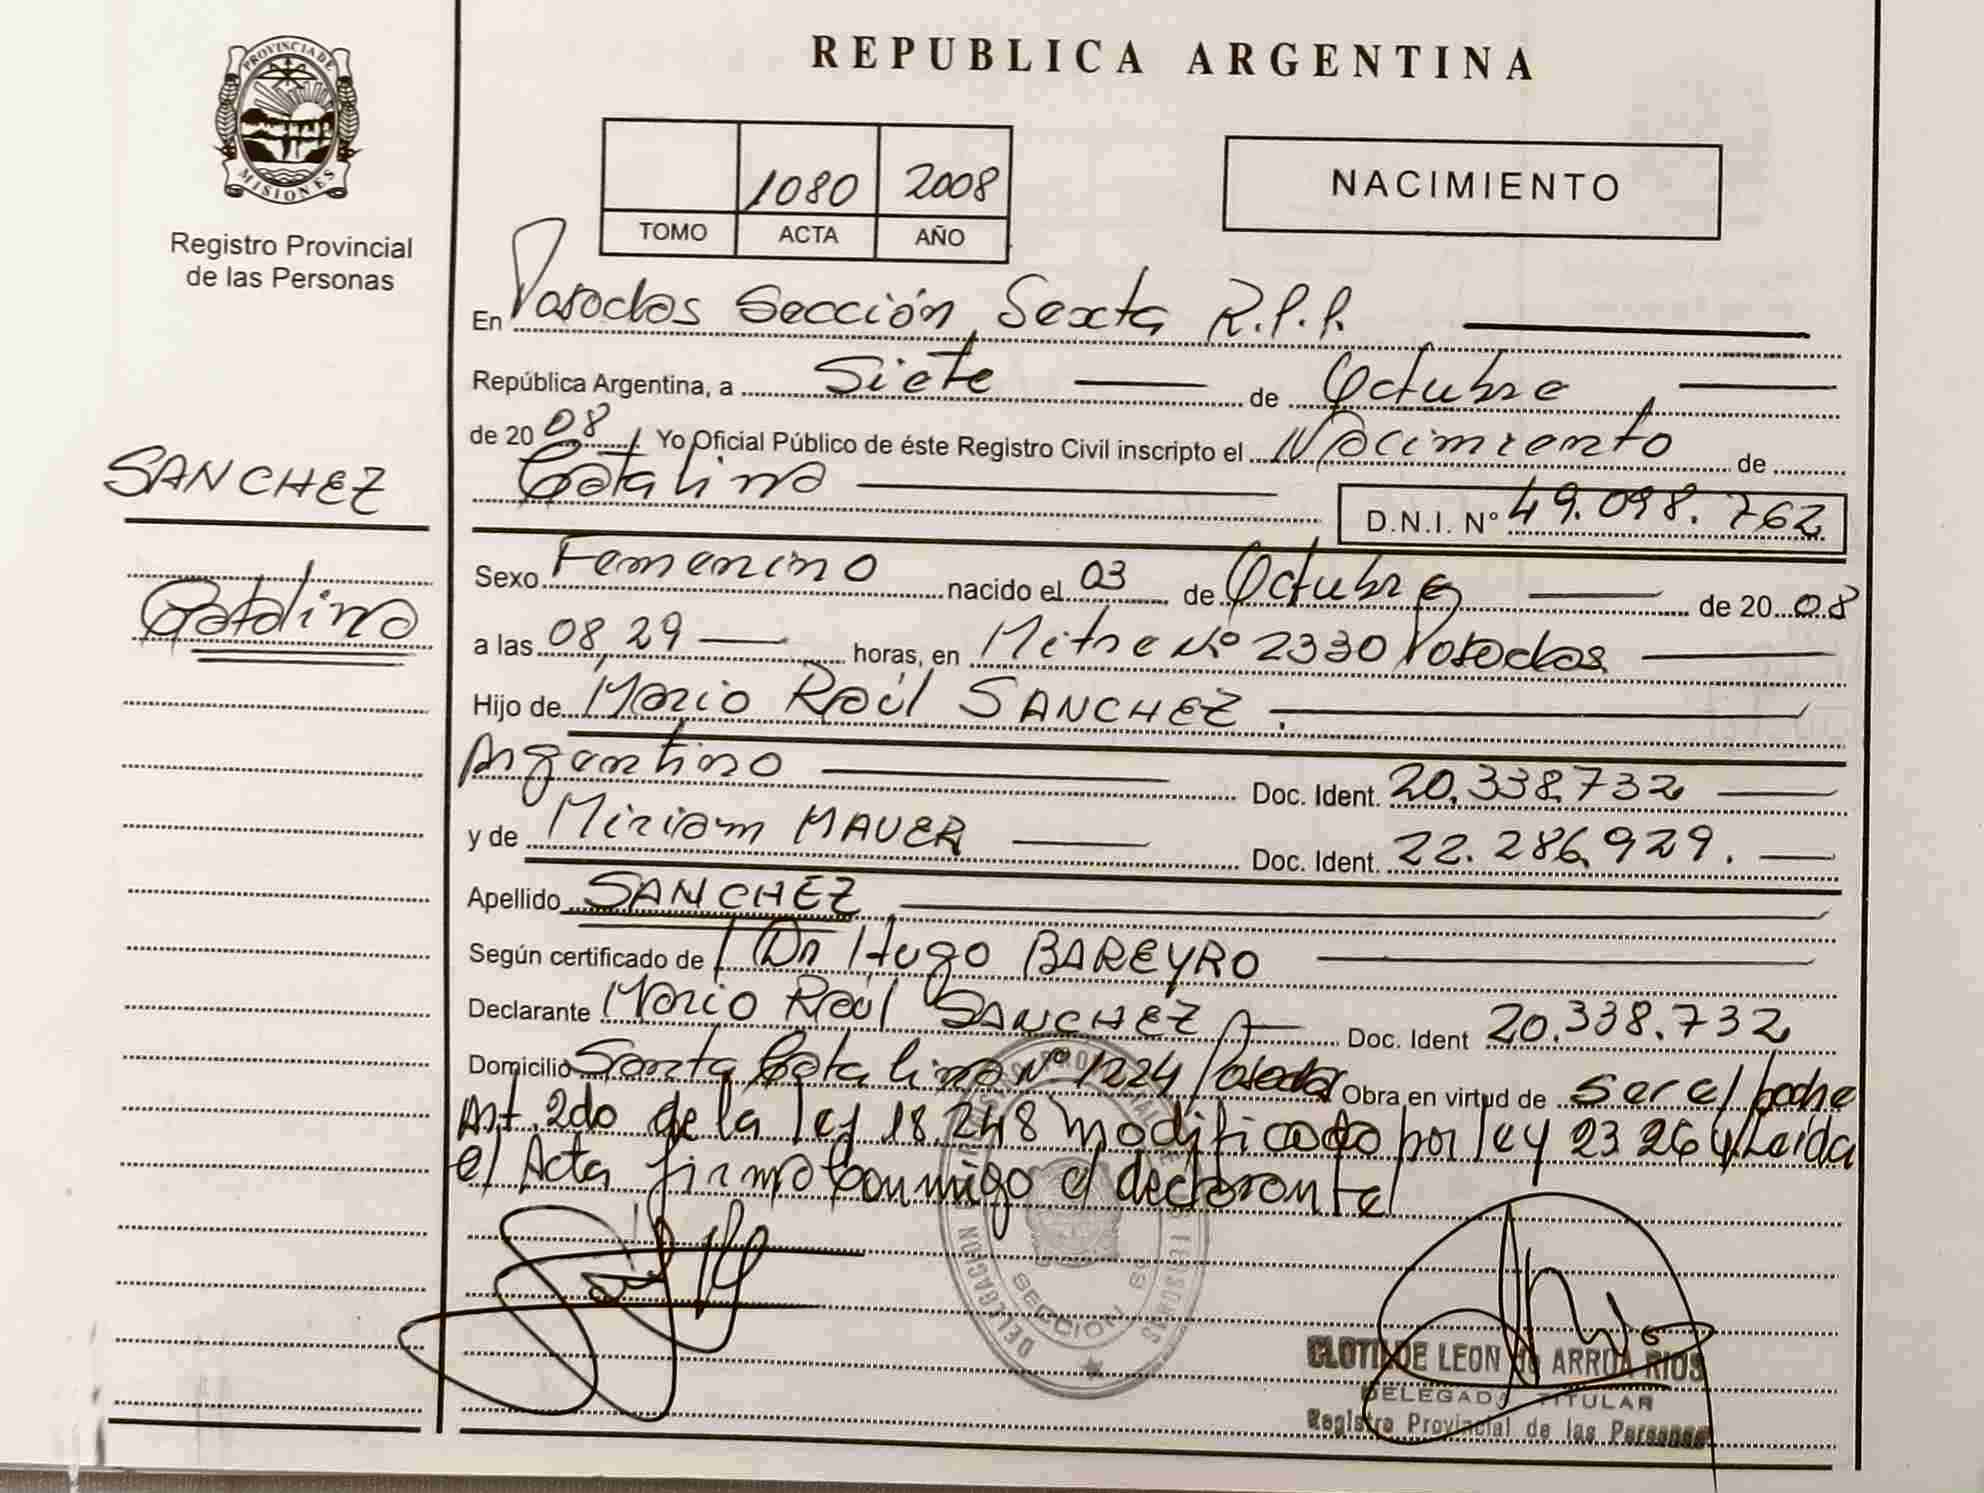 REPUBLICA ARGENTINA
PROVINCIA DE
MISIONES
Registro Provincial
de las Personas
1080 2008
TOMO ACTA AÑO
NACIMIENTO
En Posadas Sección Sexta R.P.P.
República Argentina, a Siete de Octubre
de 2008 Yo Oficial Público de éste Registro Civil inscripto el Nacimiento de
Catalina
D.N.I. Nº 49.098.762
SANCHEZ
Catalina
Sexo Femenino nacido el 03 de Octubre de 2008
a las 08,29 horas, en Mitre Nº 2330 Posadas
Hijo de Mario Raúl SANCHEZ.
Argentino Doc. Ident. 20.338.732
y de Miriam MAUER Doc. Ident. 22.286.929.
Apellido SANCHEZ
Según certificado de Dr Hugo BAREYRO
Declarante Mario Raúl SANCHEZ Doc. Ident 20.338.732
Domicilio Santa Catalina Nº 1224 Posadas Obra en virtud de Ser el padre
Art. 2do de la ley 18.248 modificado por ley 23 264 Leída
el Acta firma conmigo el declarante
DELEGACION
SECCION
MISIONES
CLOTILDE LEON de ARRUA RIOS
DELEGADA TITULAR
Registro Provincial de las Personas